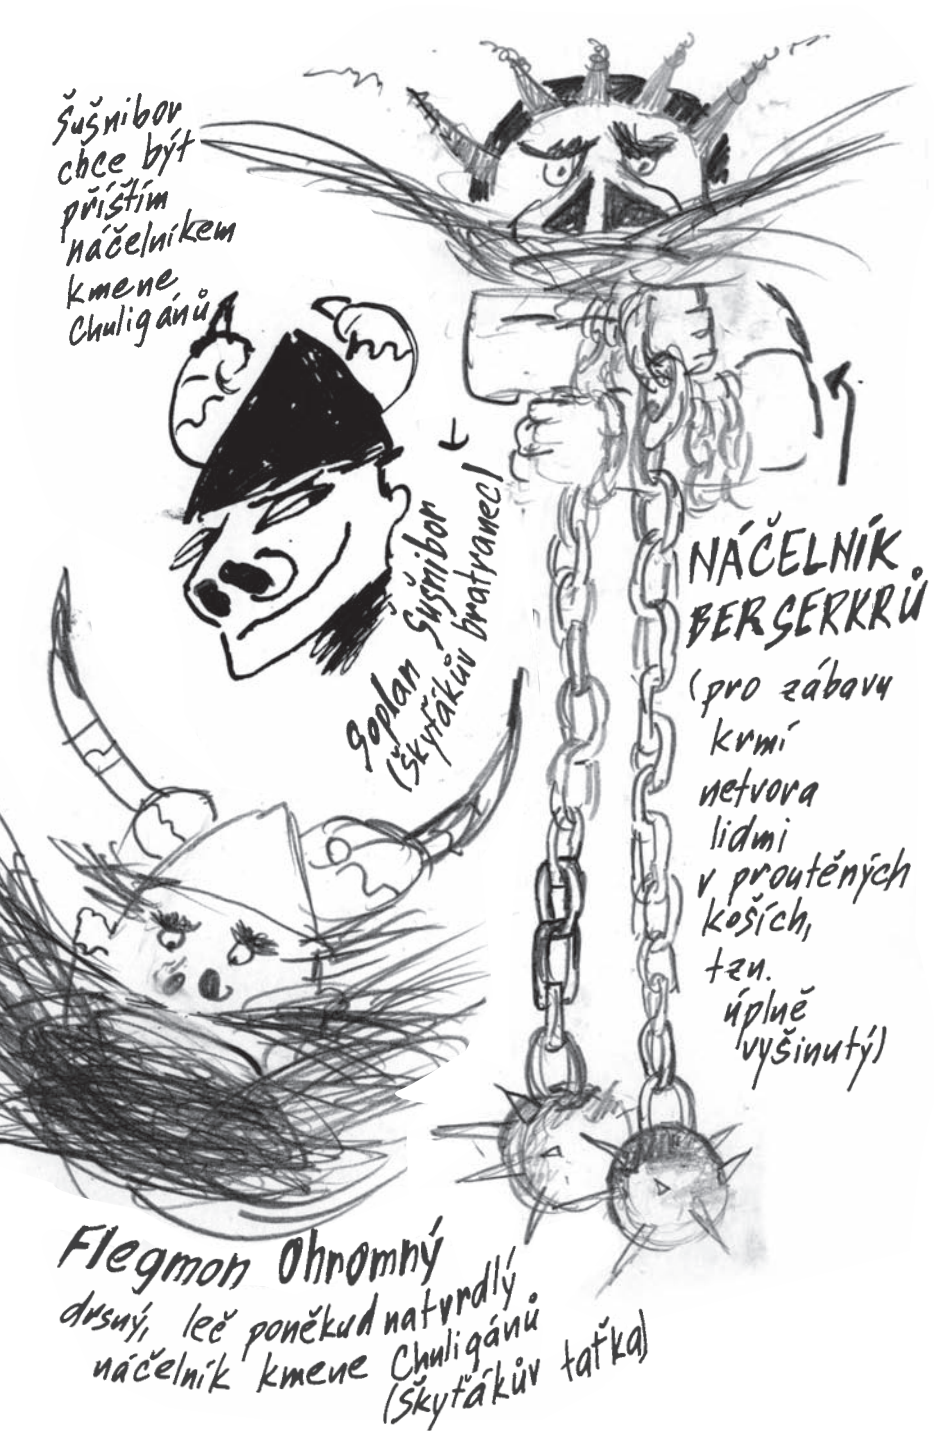 Šušnibor
chce být
příštím
náčelníkem
kmene
Chuligánů
Soplan Šušnibor
(Škyťákův bratranec)
NÁČELNÍK
BERSERKRŮ
(pro zábavu
krmí
netvora
lidmi
v proutěných
koších,
tzn.
úplně
vyšinutý)
Flegmon Ohromný
drsný, leč poněkud natvrdlý
náčelník kmene Chuligánů
(Škyťákův taťka)